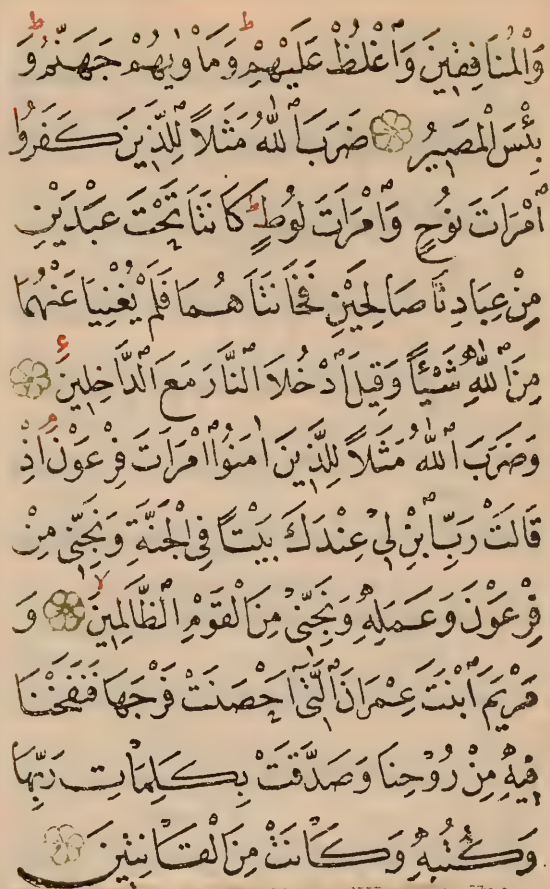 وَالْمُنَافِقِينَ وَاغْلُظْ عَلَيْهِمْ ط وَمَأْوٰيهُمْ جَهَنَّمُ ط وَ
بِئْسَ الْمَصِيرُ ضَرَبَ اللّٰهُ مَثَلًا لِلَّذِينَ كَفَرُوا
امْرَاَتَ نُوحٍ وَامْرَاَتَ لُوطٍ ط كَانَتَا تَحْتَ عَبْدَيْنِ
مِنْ عِبَادِنَا صَالِحَيْنِ فَخَانَتَاهُمَا فَلَمْ يُغْنِيَا عَنْهُمَا
مِنَ اللّٰهِ شَيْـًٔا وَقِيلَ ادْخُلَا النَّارَ مَعَ الدَّاخِلِينَ ع
وَضَرَبَ اللّٰهُ مَثَلًا لِلَّذِينَ اٰمَنُوا امْرَاَتَ فِرْعَوْنَ م اِذْ
قَالَتْ رَبِّ ابْنِ لِي عِنْدَكَ بَيْتًا فِي الْجَنَّةِ وَنَجِّنِي مِنْ
فِرْعَوْنَ وَعَمَلِهِ وَنَجِّنِي مِنَ الْقَوْمِ الظَّالِمِينَ لا وَ
مَرْيَمَ ابْنَتَ عِمْرَانَ الَّتِي اَحْصَنَتْ فَرْجَهَا فَنَفَخْنَا
فِيهِ مِنْ رُوحِنَا وَصَدَّقَتْ بِكَلِمَاتِ رَبِّهَا
وَكُتُبِهِ وَكَانَتْ مِنَ الْقَانِتِينَ